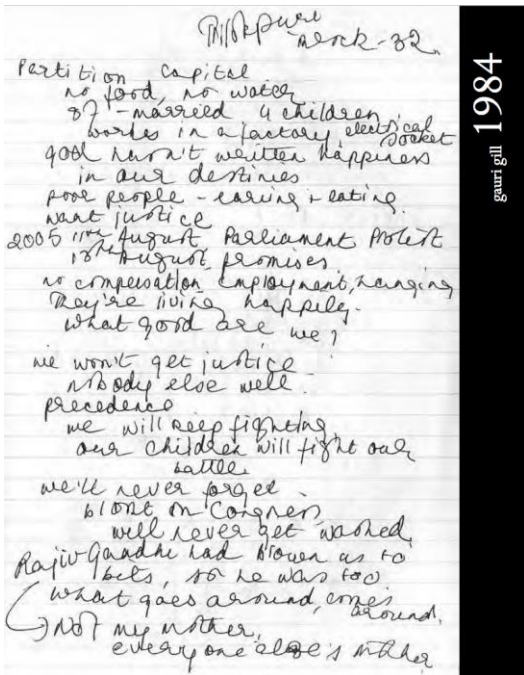 Trilokpuri
Block-32
Partition Capital
no food, no water
87 - married 4 children
works in a factory, electrical
socket
god hasn't written happiness
in our destinies
poor people - earing + eating
want justice
2005 11th August Parliament Protest
August promises
no compensation employment, hanging
They're living happily.
what good are we?
we won't get justice
nobody else well
precedence
we will keep fighting
our children will fight our
battle
we'll never forget
blot on Congress
will never get washed
Rajiv Gandhi had blown us to
bits, so he was too
what goes around, comes
around.
Not my mother,
everyone else's mother
gauri gill 1984